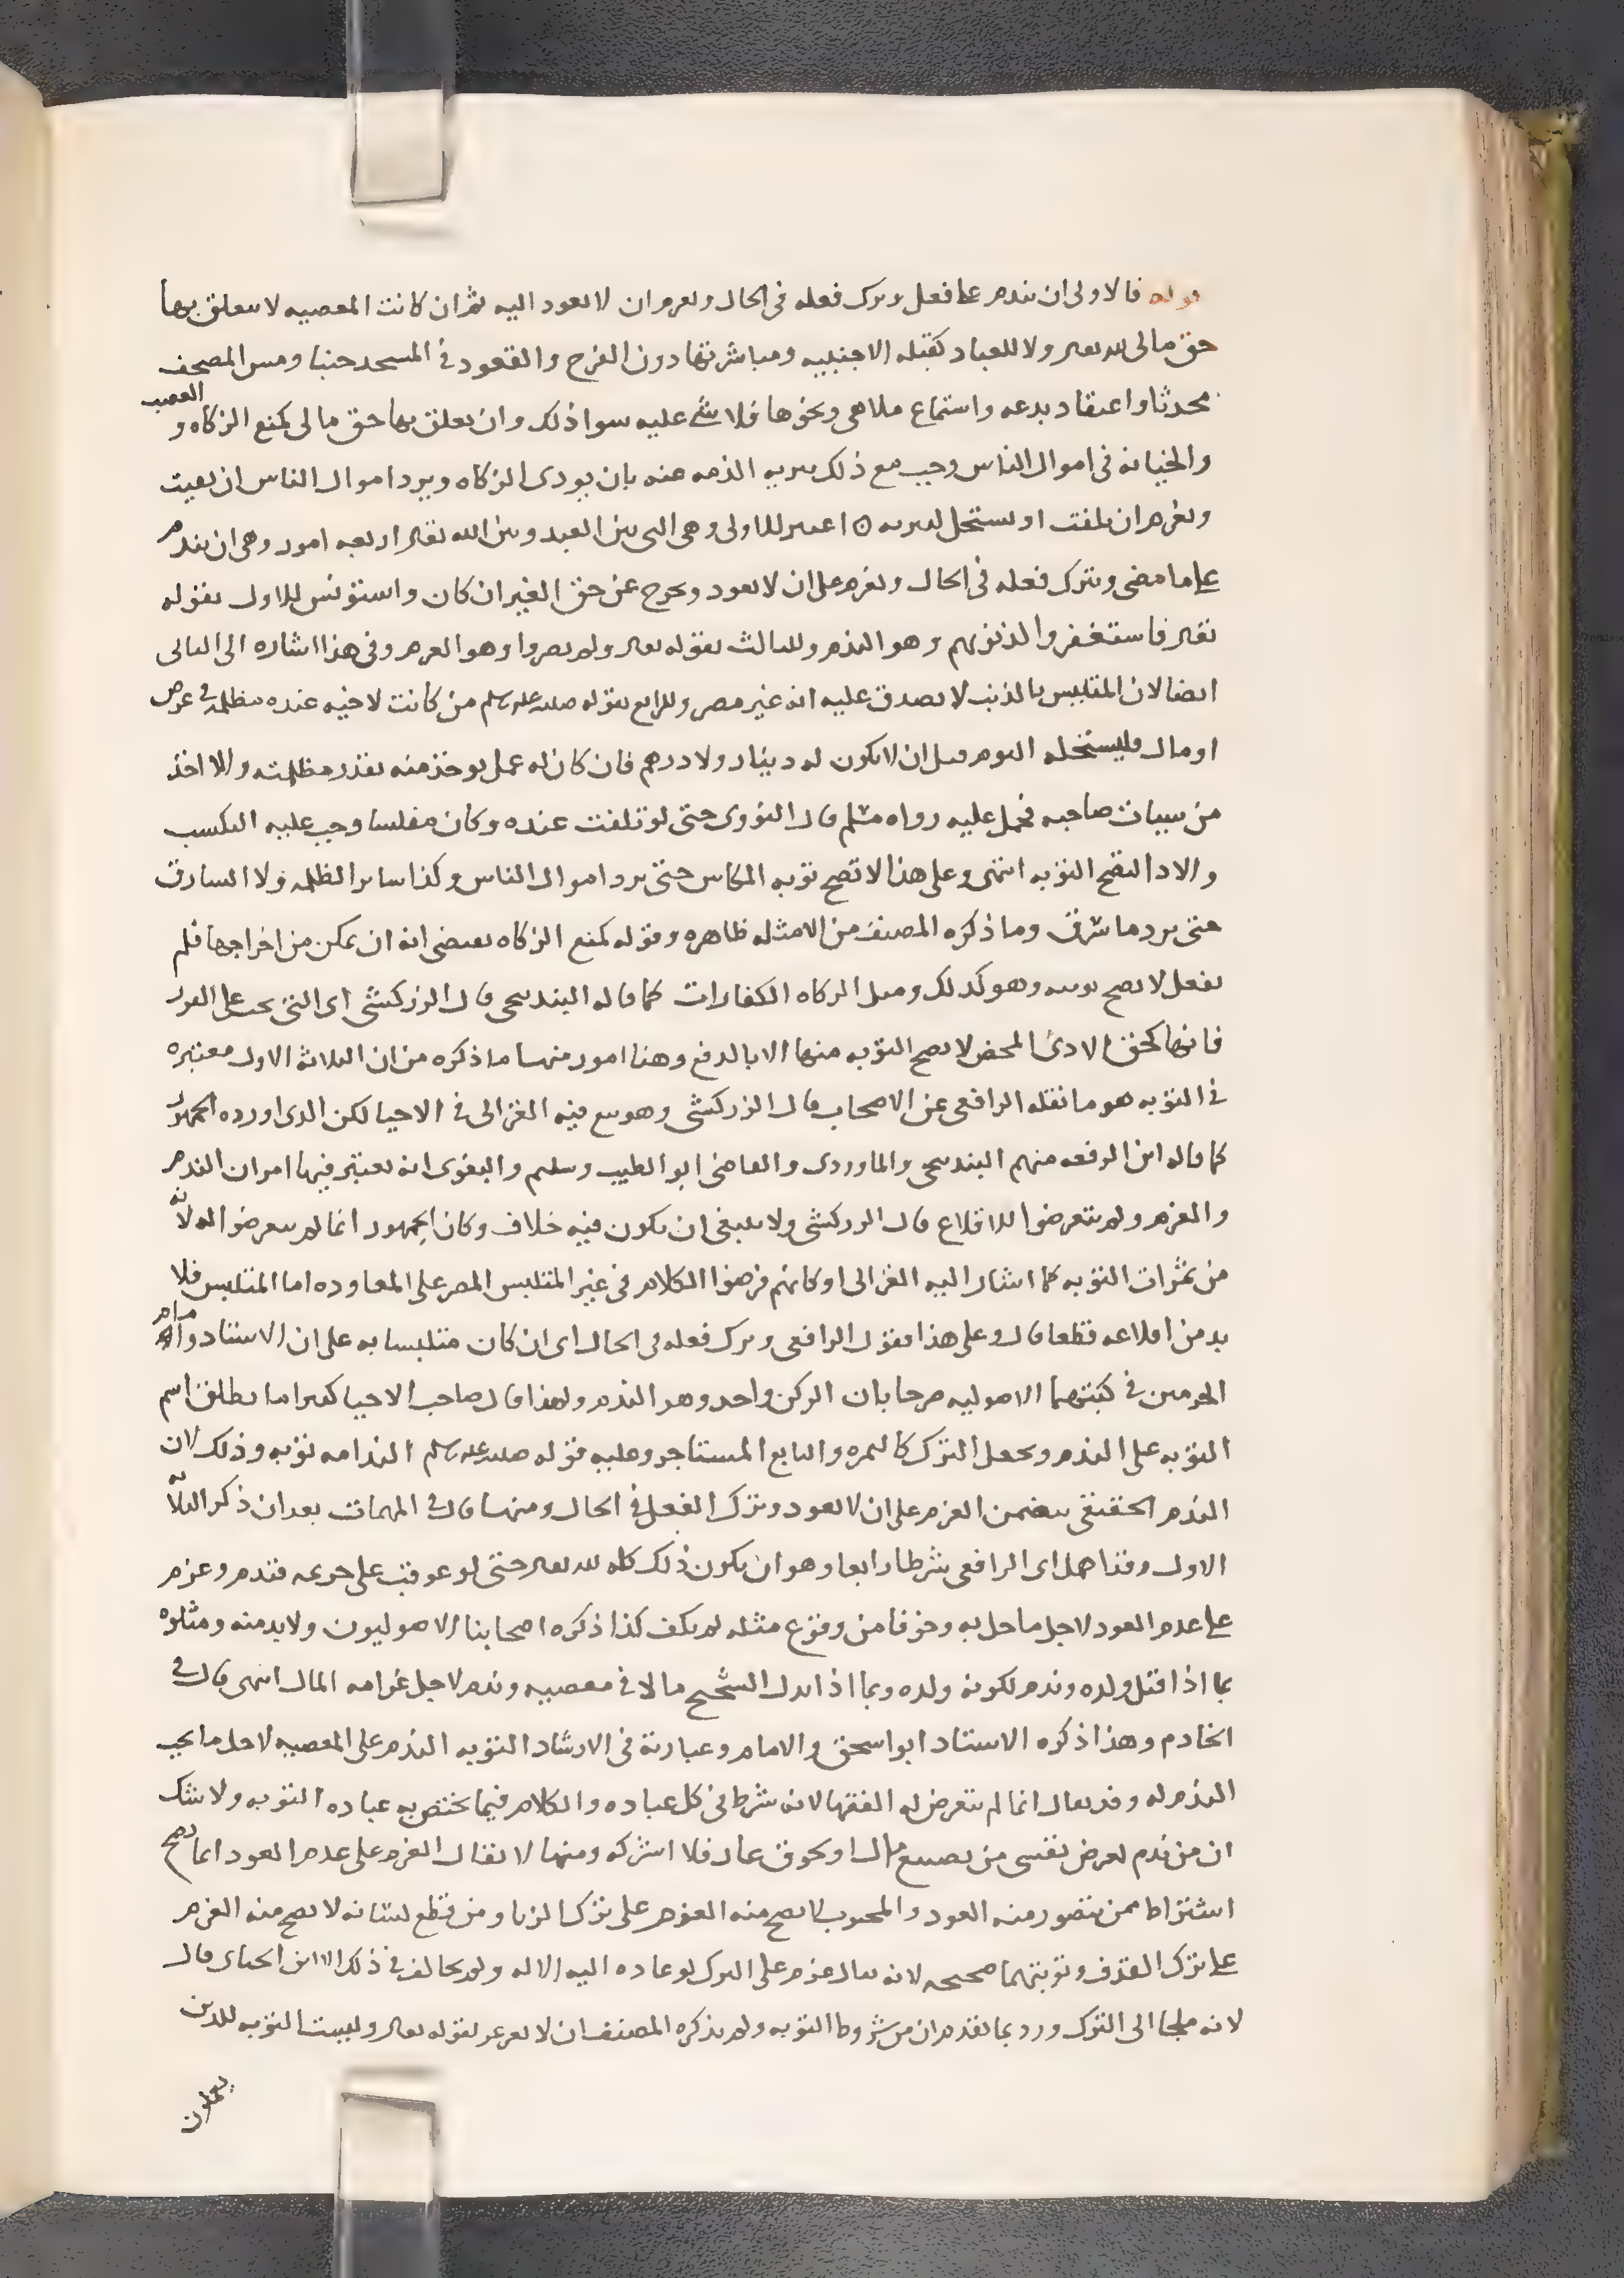 قوله فالاولى ان يندم على فعل ويترك فعله في الحال ويعزم ان لا يعود اليه ثم ان كانت المعصيه لا يتعلق بها
حق مالي لله تعالى ولا للعباد كقبله الاجنبيه ومباشرتها دون الفرج والقعود في المسجد جنبا ومس المصحف
محدثا واعتقاد بدعه واستماع ملاهي ونحوها فلا شي عليه سوا ذلك وان تعلق بها حق مالي كمنع الزكاه والغصب
والخيانه في اموال الناس وجب مع ذلك تبريه الذمه عنه بان يودى الزكاه ويرد اموال الناس ان بقيت
ويغرم ان تلفت او يستحل ليبريه ه اعتبر للاولى وهي التي بين العبد وبين الله تعالى اربعه امور وهي ان يندم
على ما مضى ويترك فعله في الحال ويعزم على ان لا يعود ويخرج عن حق الغير ان كان واستونس للاول بقوله
تعالى فاستغفروا لذنوبهم وهو الندم وللثالث بقوله تعالى ولم يصروا وهو العزم وفي هذا اشاره الى الثاني
ايضا لان المتلبس بالذنب لا يصدق عليه انه غير مصر وللرابع بقوله صلى الله عليه وسلم من كانت لاخيه عنده مظلمه في عرض
او مال فليستحله اليوم قبل ان لا يكون له دينار ولا درهم فان كان له عمل يوخذ منه بقدر مظلمته والا اخذ
من سيات صاحبه فحمل عليه رواه مسلم قال النووي حتى لو تلفت عنده وكان مفلسا وجب عليه التكسب
والادا لتصح التوبه انتهى وعلى هذا لا تصح توبه المكاس حتى يرد اموال الناس وكذا ساير الظلمه ولا السارق
حتى يرد ما سرق وما ذكره المصنف من الامثله ظاهره وقوله كمنع الزكاه يقتضى انه ان تمكن من اخراجها فلم
يفعل لا تصح توبته وهو كذلك ومثل الزكاه الكفارات كما قاله البندنيجي قال الزركشي اى التي تجب على الفور
فانها كحق الادمى المحض لا تصح التوبه منها الا بالدفع وهنا امور منها ما ذكره من ان الثلاثه الاول معتبره
في التوبه هو ما نقله الرافعي عن الاصحاب قال الزركشي وهو تبع فيه الغزالى في الاحيا لكن الذى اورده الجمهور
كما قاله ابن الرفعه منهم البندنيجي والماوردى والقاضي ابو الطيب وسليم والبغوى انه يعتبر فيها امران الندم
والعزم ولم يتعرضوا للاقلاع قال الزركشي ولا ينبغي ان يكون فيه خلاف وكان الجمهور انما لم يتعرضوا له لانه
من ثمرات التوبه كما اشار اليه الغزالى او كانهم فرضوا الكلام في غير المتلبس المصر على المعاوده اما المتلبس فلا
بد من اقلاعه قطعا قال وعلى هذا فقول الرافعي ويترك فعله في الحال اى ان كان متلبسا به على ان الاستاد وامام
الحرمين في كتبهما الاصوليه صرحا بان الركن واحد وهو الندم ولهذا قال صاحب الاحيا كثيرا ما يطلق اسم
التوبه على الندم ويجعل الترك كالثمره والتابع المستاجر وعليه قوله صلى الله عليه وسلم الندامه توبه وذلك لان
الندم الحقيقي يتضمن العزم على ان لا يعود وترك الفعل في الحال ومنها قال في المهمات بعد ان ذكر الثلاثه
الاول وقد اهمل اى الرافعي شرطا رابعا وهو ان يكون ذلك كله لله تعالى حتى لو عوقب على جريمه فندم وعزم
على عدم العود لاجل ما حل به وخوفا من وقوع مثله لم يكف كذا ذكره اصحابنا الاصوليون ولا بد منه ومثلوه
بما اذا قتل ولده وندم لكونه ولده وبما اذا بذل الشحيح مالا في معصيه وندم لاجل غرامه المال انتهى قال في
الخادم وهذا ذكره الاستاد ابو اسحق والامام وعبارته في الارشاد التوبه الندم على المعصيه لاجل ما يجب
الندم له وقد يقال انما لم يتعرض له الفقها لانه شرط في كل عباده والكلام فيما يختص به عباده التوبه ولا شك
ان من ندم لغرض نفسى من تضييع مال او لحوق عار فلا اشركه ومنها لا يقال العزم على عدم العود انما يصح
اشتراط ممن يتصور منه العود والمجبوب لا يصح منه العزم على ترك الزنا ومن قطع لسانه لا يصح منه العزم
على ترك القذف وتوبتهما صحيحه لانه يقال عزم على الترك لو عاده اليه الاله ولم يخالف في ذلك الا ابن الجباى قال
لانه ملجا الى الترك ورد بما تقدم ان من شروط التوبه ولم يذكره المصنف ان لا يغرغر لقوله تعالى وليست التوبه للذين
يعملون